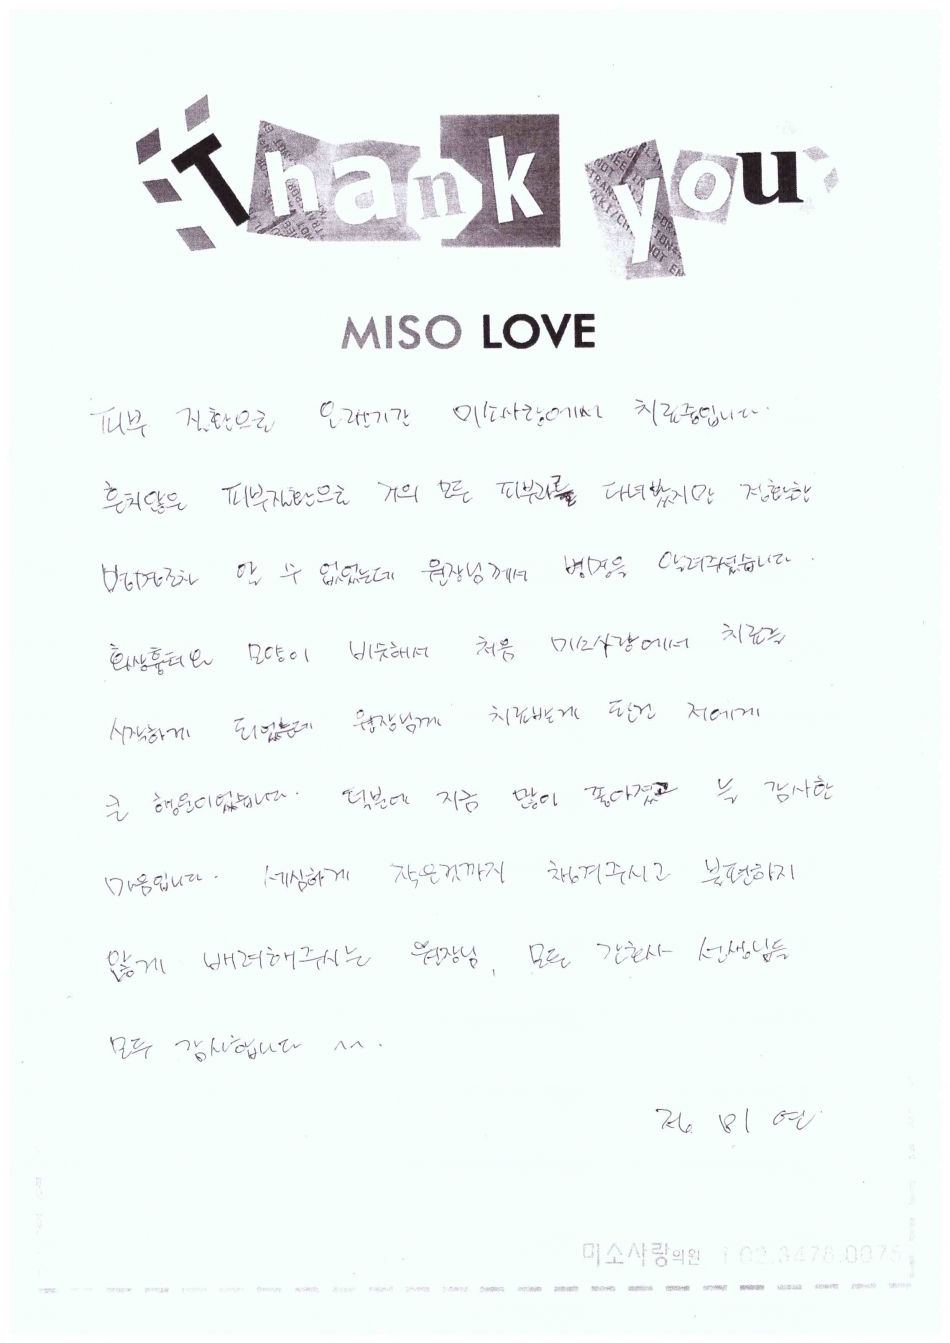 Thank you
MISO LOVE
피부 질환으로 오랜기간 미소사랑에서 치료중입니다.
흔치않은 피부질환으로 거의 모든 피부과를 다녀봤지만 정확한
병명조차 알 수 없었는데 원장님께서 병명을 알려주셨습니다.
화상흉터와 모양이 비슷해서 처음 미소사랑에서 치료를
시작하게 되었는데 원장님께 치료받게 된건 저에게
큰 행운이었습니다. 덕분에 지금 많이 좋아졌고 늘 감사한
마음입니다. 세심하게 작은것까지 챙겨주시고 불편하지
않게 배려해주시는 원장님, 모든 간호사 선생님들
모두 감사합니다 ^^.
정 미 연
미소사랑의원 02.3476.0075